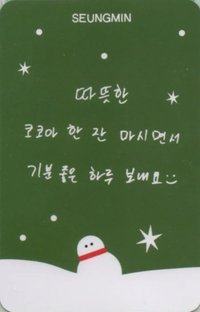 SEUNGMIN
따뜻한
코코아 한 잔 마시면서
기분 좋은 하루 보내요:)